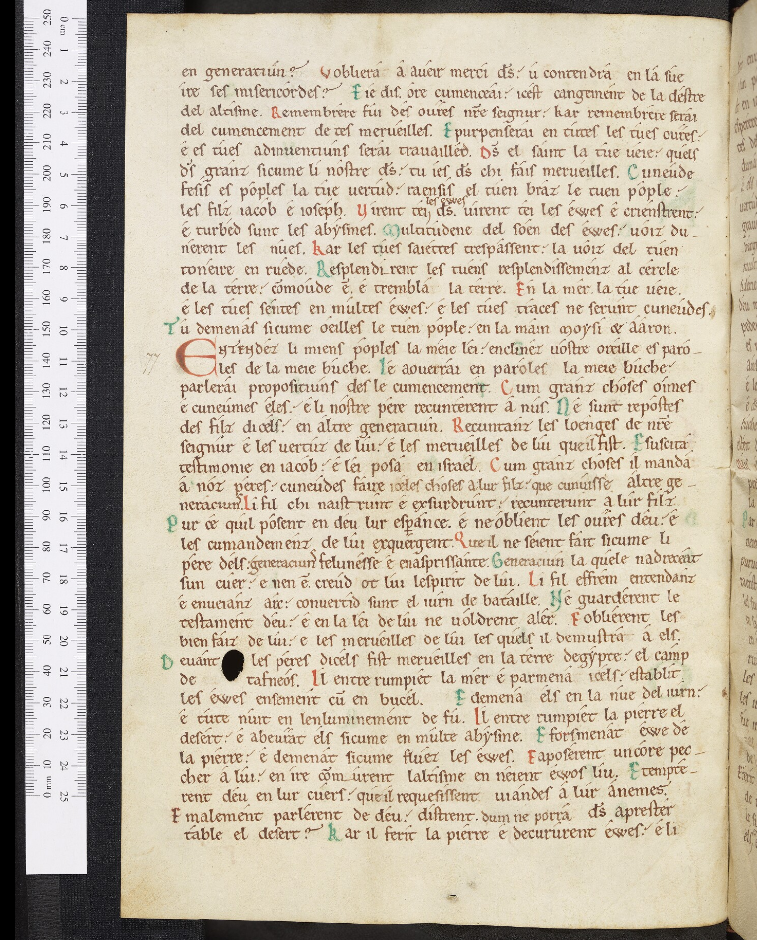 en generatiun? U obliera a aveir merci d̄s: u contendra en la sue
ire ses misericordes? E ie dis. ore cumencai: icest cangement de la destre
del altisme. Remembrere fui des oures nr̄e seignur: kar remembrere serai
del cumencement de tes merveilles. E purpenserai en tutes les tues oures:
e es tues adinventiuns serai travailled. D̄s el saint la tue veie: quels
d̄s granz sicume li nostre d̄s: tu ies d̄s chi fais merveilles. Cuneude
fesis es poples la tue vertud: raensis el tuen braz le tuen pople:
les filz iacob e ioseph. Virent tei les ewes d̄s. virent tei les ewes e crienstrent:
e turbed sunt les abysmes. Multitudene del soen des ewes: voiz du-
nerent les nues. Kar les tues saiettes trespassent: la voiz del tuen
toneire en ruede. Resplendirent les tuens resplendissemenz al cercle
de la terre: comoude ē, e trembla la terre. En la mer la tue veie.
e les tues sentes en multes ewes: e les tues traces ne serunt cuneudes.
Tu demenas sicume oeilles le tuen pople: en la main moysi & aaron.
77 Entendez li miens poples la meie lei: enclinez vostre oreille es paro-
les de la meie buche. Ie aoverrai en paroles la meie buche:
parlerai propositiuns des le cumencement. Cum granz choses oimes
e cuneumes eles: e li nostre pere recunterent a nus. Ne sunt repostes
des filz dicels: en altre generatiun. Recuntanz les loenges de nr̄e
seignur e les vertuz de lui: e les merveilles de lui que il fist. E suscita
testimonie en iacob: e lei posa en israel. Cum granz choses il manda
a noz peres: cuneudes faire iceles choses a lur filz: que cunuisse altre ge-
neraciun. Li fil chi naistrunt e exsurdrunt: recunterunt a lur filz
Pur ce quil posent en deu lur esperance. e ne oblient les oures deu: e
les cumandemenz de lui exquergent. Que il ne seient fait sicume li
pere dels: generaciun felunesse e enasprissante. Generaciun la quele nadreceat
sun cuer: e nen ē creud ot lui lespirit de lui. Li fil effrem entendanz
e enveianz arc: convertid sunt el iurn de bataille. Ne guarderent le
testament deu: e en la lei de lui ne voldrent aler. E oblierent les
bienfaiz de lui: e les merveilles de lui les quels il demustra a els.
Devant les peres dicels fist merveilles en la terre degypte: el camp
de tafneos. Il entre rumpiet la mer e parmena icels: establit
les ewes ensement cū en bucel. E demena els en la nue del iurn:
e tute nuit en lenluminement de fu. Il entre rumpiet la pierre el
desert: e abeuvat els sicume en multe abysme. E forsmenat ewe de
la pierre: e demenat sicume fluez les ewes. E aposerent uncore pec-
cher a lui: en ire com̄urent laltisme en neient ewos liu. E tempte-
rent deu en lur cuers: que il requesissent viandes a lur anemes.
E malement parlerent de deu: distrent. dum ne porra d̄s aprester
table el desert? Kar il ferit la pierre e decururent ewes: e li